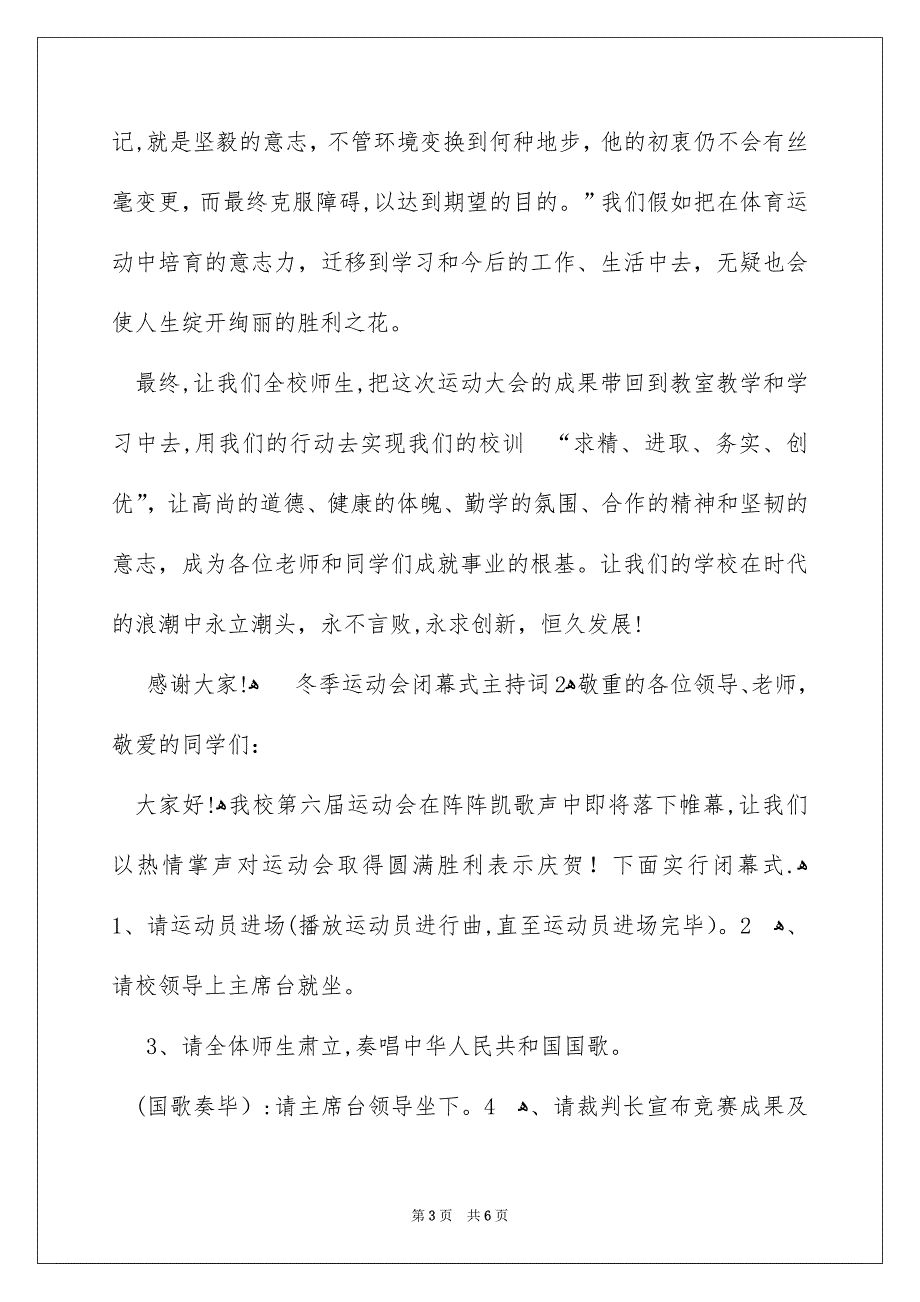 记,就是坚毅的意志，不管环境变换到何种地步，他的初衷仍不会有丝
毫变更，而最终克服障碍,以达到期望的目的。”我们假如把在体育运
动中培育的意志力，迁移到学习和今后的工作、生活中去，无疑也会
使人生绽开绚丽的胜利之花。
最终,让我们全校师生,把这次运动大会的成果带回到教室教学和学
习中去,用我们的行动去实现我们的校训　“求精、进取、务实、创
优”，让高尚的道德、健康的体魄、勤学的氛围、合作的精神和坚韧的
意志，成为各位老师和同学们成就事业的根基。让我们的学校在时代
的浪潮中永立潮头，永不言败,永求创新，恒久发展!
感谢大家!ﻫ　冬季运动会闭幕式主持词2ﻫ敬重的各位领导、老师，
敬爱的同学们：
大家好!ﻫ我校第六届运动会在阵阵凯歌声中即将落下帷幕,让我们
以热情掌声对运动会取得圆满胜利表示庆贺！下面实行闭幕式.ﻫ
1、请运动员进场(播放运动员进行曲,直至运动员进场完毕）。2　ﻫ、
请校领导上主席台就坐。
3、请全体师生肃立,奏唱中华人民共和国国歌。
(国歌奏毕）:请主席台领导坐下。4　ﻫ、请裁判长宣布竞赛成果及
第 3 页　共 6 页